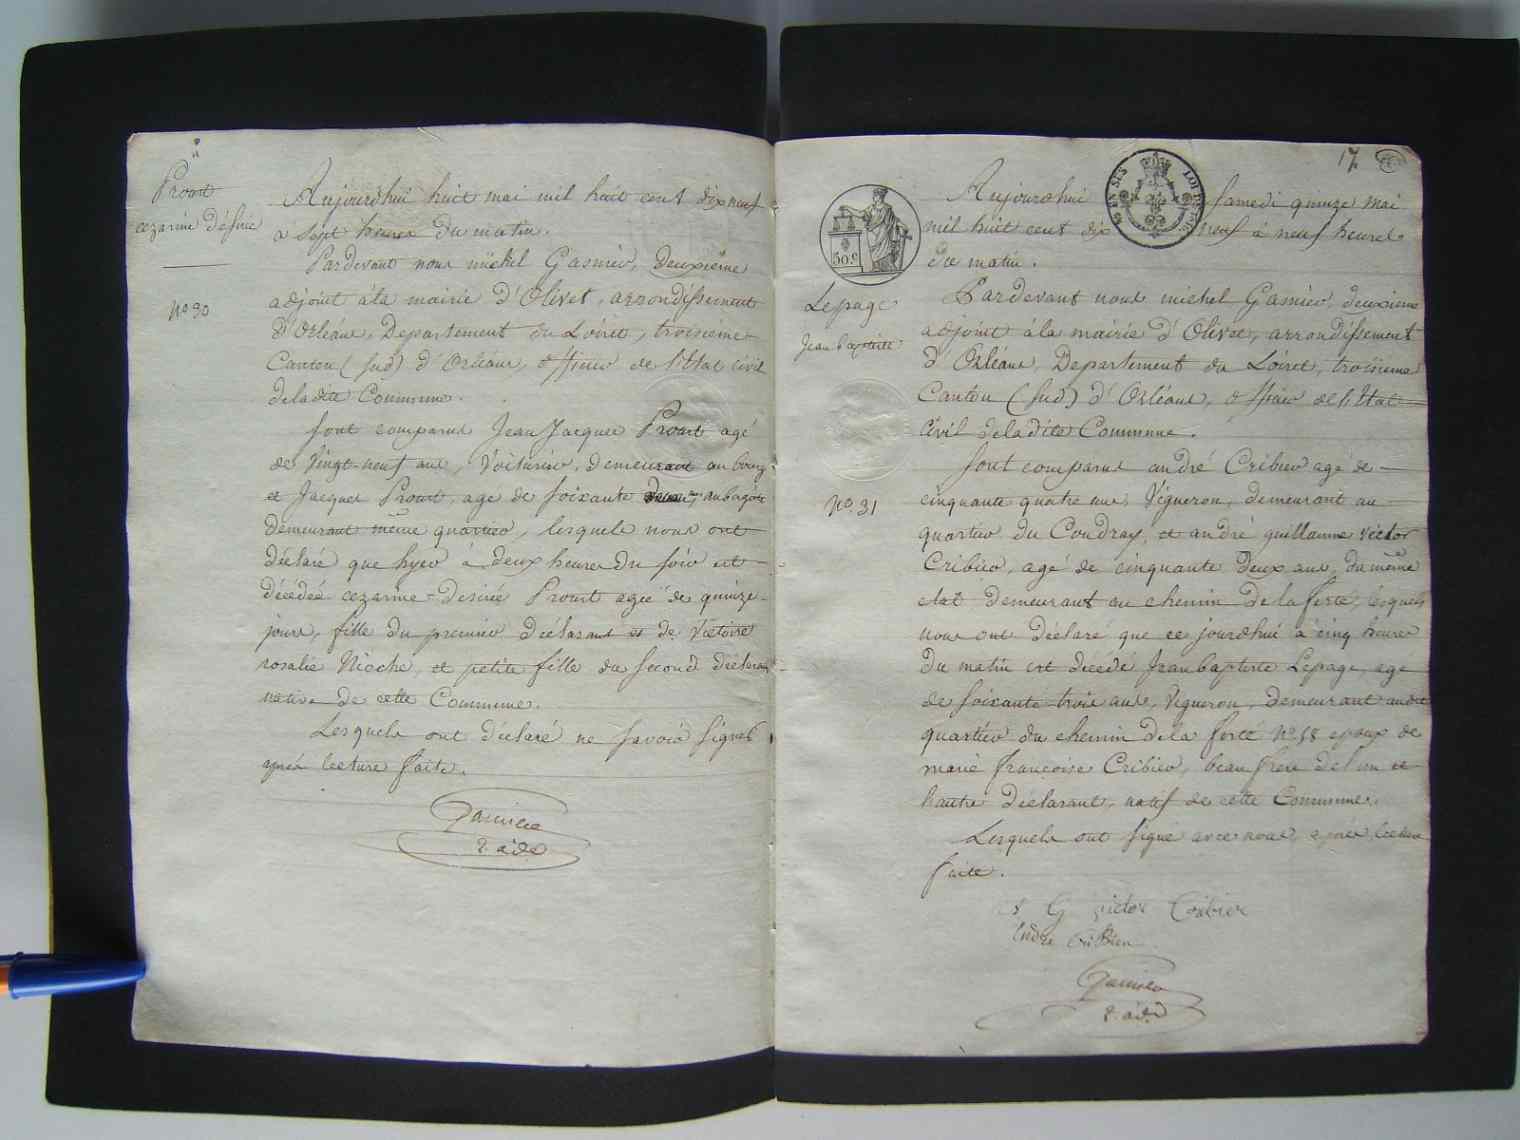 Prout
cezarine désirée
No 30
Aujourdhui huit mai mil huit cent dix neuf
a sept heures du matin.
Pardevant nous michel Gasnier, deuxième
adjoint à la mairie d'Olivet, arrondissement
d'Orléans, Département du Loiret, troisieme
Canton (sud) d'Orléans, officier de l'Etat civil
de la dite Commune.
sont comparus Jean Jacques Prout agé
de vingt-neuf ans, Voiturier, demeurant au bourg
et Jacques Prout, age de soixante
demeurant même quartier, lesquels nous ont
déclaré que hyer à deux heures du soir est
décédée cezarine-desirée Prout agée de quinze
jours, fille du premier déclarant et de Victoire
rosalie Nioche, et petite fille du second déclarant
native de cette Commune.
Lesquels ont déclaré ne savoir signer
après lecture faite.
Gasnier
2. adj
17
50 c
Lepage
Jean baptiste
No. 31
Aujourdhui samedi quinze mai
mil huit cent dix neuf à neuf heures
du matin.
Pardevant nous michel Gasnier deuxieme
adjoint à la mairie d'Olivet, arrondissement
d'Orléans, Departement du Loiret, troisieme
Canton (sud) d'Orléans, officier de l'Etat
Civil de la dite Commune.
sont comparus andré Cribier agé de
cinquante quatre ans, Vigneron, demeurant au
quartier du Coudray, et andré guillaume victor
Cribier, agé de cinquante deux ans, du même
etat demeurant au chemin de la ferté, lesquels
nous ont déclaré que ce jourdhui à cinq heures
du matin est décédé Jean baptiste Lepage, agé
de soixante trois ans, Vigneron, demeurant audit
quartier du chemin de la ferté No. 58 epoux de
marie françoise Cribier, beau frere de l'un et
l'autre déclarant, natif de cette Commune.
Lesquels ont signé avec nous, après lecture
faite.
G victor Cribier
André Cribier
Gasnier
2. adj